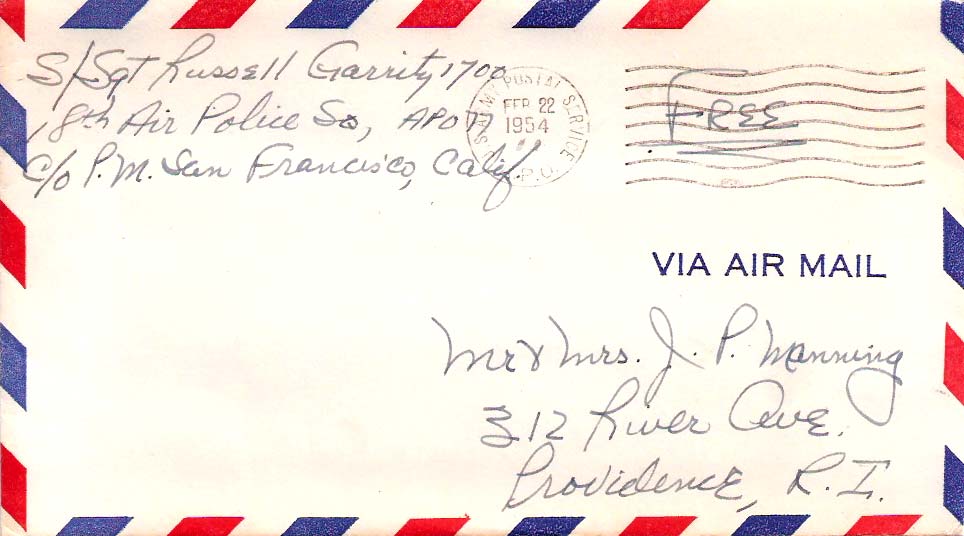 S/Sgt Russell Garrity 1700
18th Air Police Sq, APO 77
c/o P.M. San Francisco, Calif.
ARMY POSTAL SERVICE
FEB 22
1954
A.P.O.
FREE
VIA AIR MAIL
Mr & Mrs. J. P. Manning
312 River Ave.
Providence, R. I.